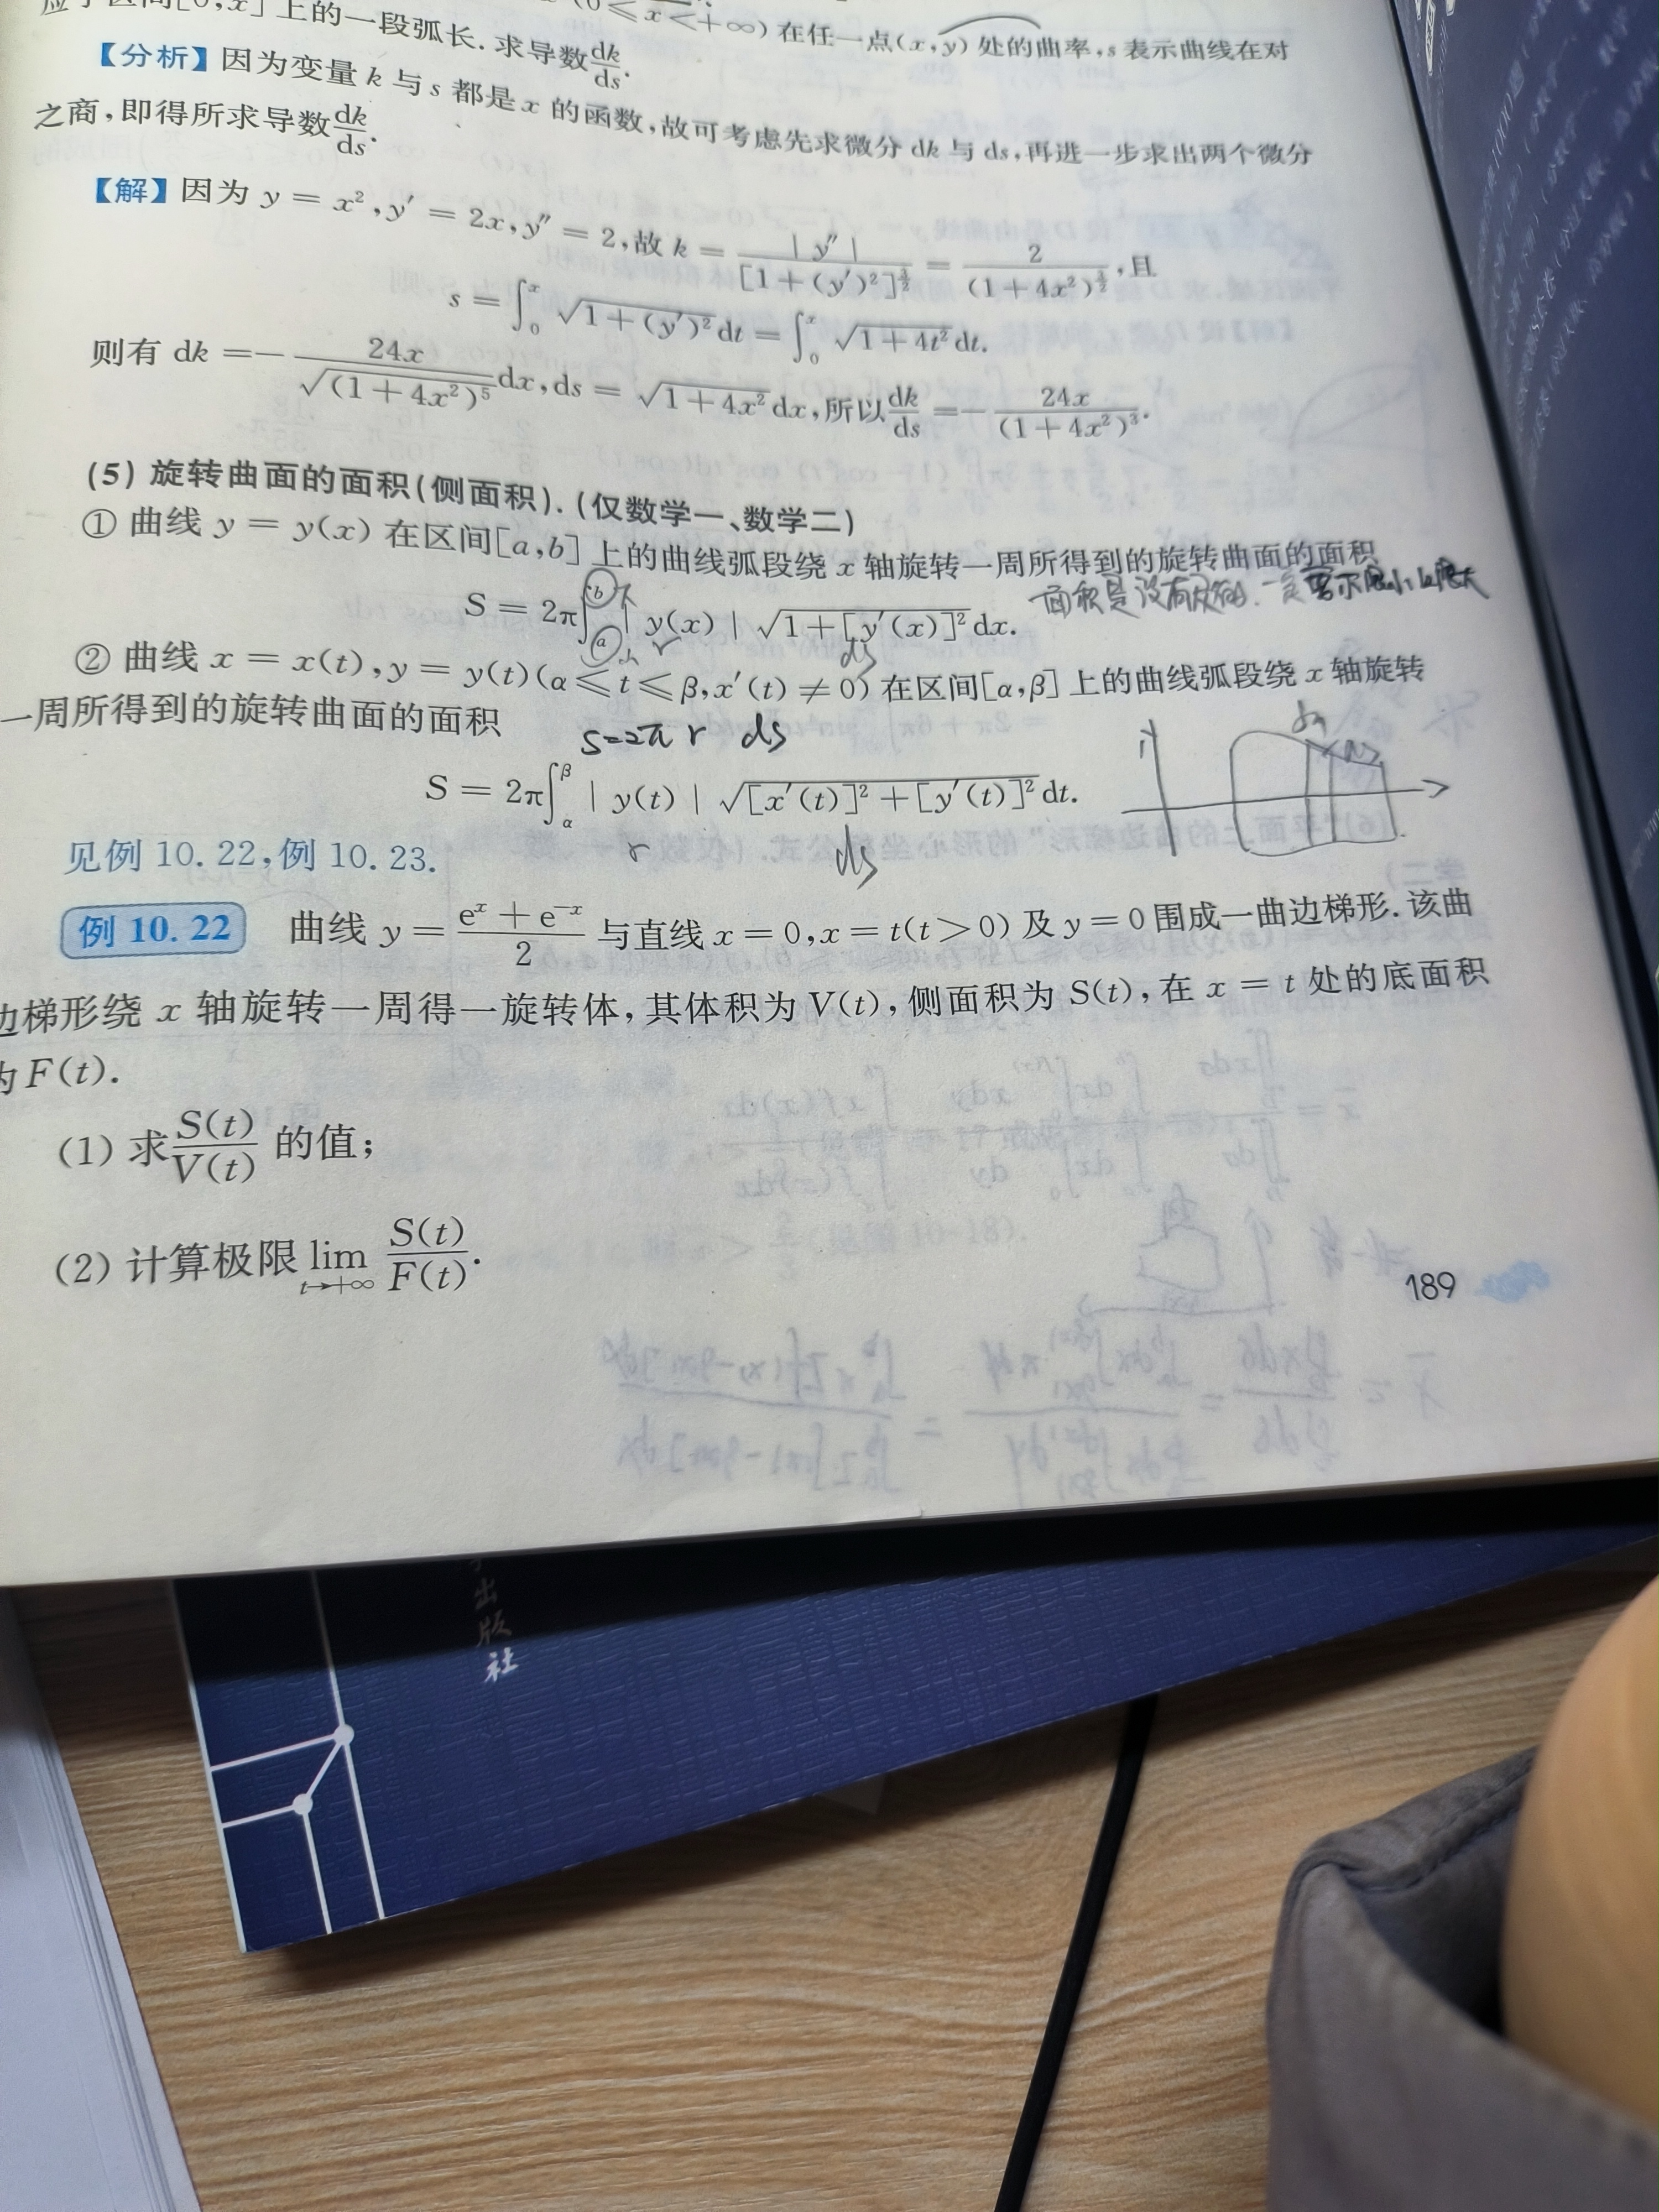 应于区间[0,x]上的一段弧长.求导数dk/ds.
(0≤x<+∞)在任一点(x,y)处的曲率,s表示曲线在对
【分析】因为变量k与s都是x的函数,故可考虑先求微分dk与ds,再进一步求出两个微分
之商,即得所求导数dk/ds.
【解】因为y=x²,y′=2x,y″=2,故k=|y″|/[1+(y′)²]^(3/2)=2/(1+4x²)^(3/2),且
s=∫₀ˣ√(1+(y′)²)dt=∫₀ˣ√(1+4t²)dt.
则有dk=-24x/√((1+4x²)⁵)dx,ds=√(1+4x²)dx,所以dk/ds=-24x/(1+4x²)³.
(5)旋转曲面的面积(侧面积).(仅数学一、数学二)
①曲线y=y(x)在区间[a,b]上的曲线弧段绕x轴旋转一周所得到的旋转曲面的面积
S=2π∫ₐᵇ|y(x)|√(1+[y′(x)]²)dx.
大
小
r
ds
②曲线x=x(t),y=y(t)(α≤t≤β,x′(t)≠0)在区间[α,β]上的曲线弧段绕x轴旋转
一周所得到的旋转曲面的面积
S=2π r ds
S=2π∫_α^β|y(t)|√([x′(t)]²+[y′(t)]²)dt.
r
ds
见例10.22,例10.23.
例 10.22 曲线y=(eˣ+e⁻ˣ)/2与直线x=0,x=t(t>0)及y=0围成一曲边梯形.该曲
边梯形绕x轴旋转一周得一旋转体,其体积为V(t),侧面积为S(t),在x=t处的底面积
为F(t).
(1)求S(t)/V(t)的值;
(2)计算极限lim t→+∞ S(t)/F(t).
189
出版社